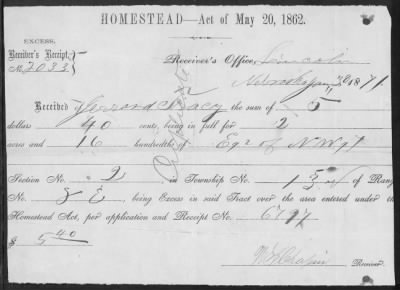 HOMESTEAD—Act of May 20, 1862.
EXCESS.
Receiver's Receipt,
No. 2033
Receiver's Office, Lincoln
1871
Received of Macy the sum of 5
dollars 40 cents, being in full for 2
acres and 16 hundredths of
Duplicate
Section No. 2 in Township No. 1 of Range
No. 8 E, being Excess in said Tract over the area entered under the
Homestead Act, per application and Receipt No.
$ 5 40
Receiver.